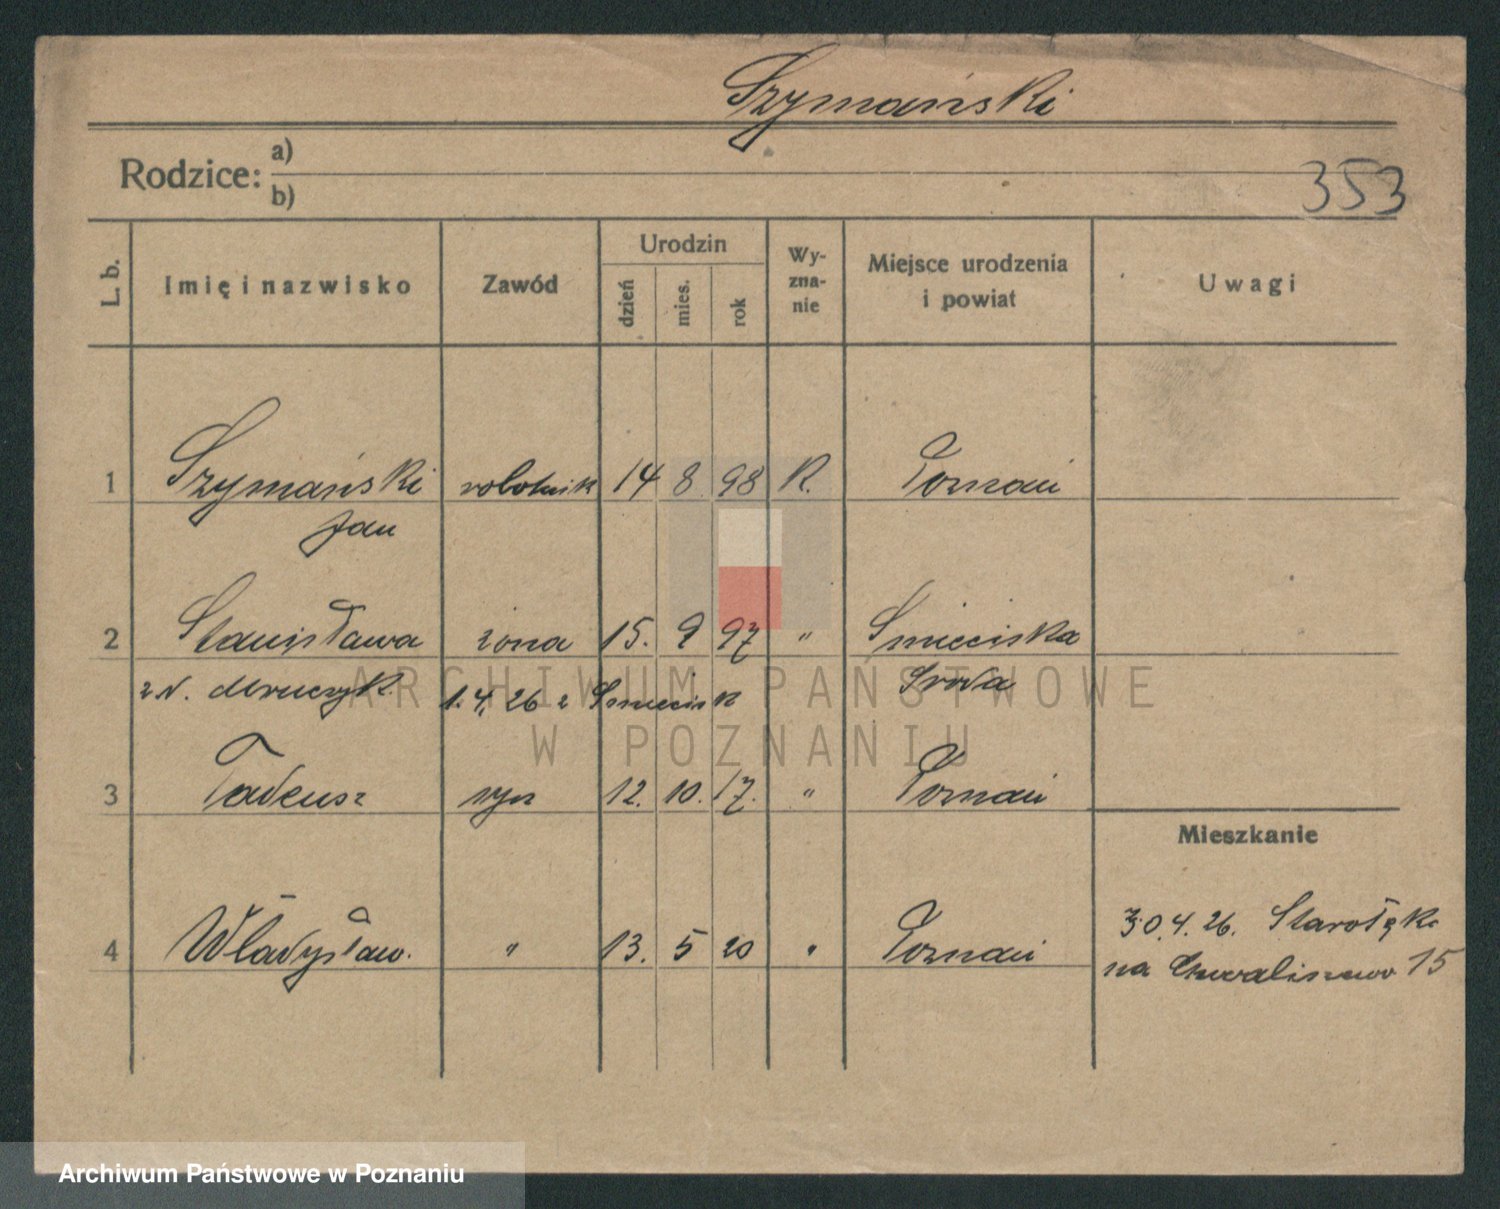 Szymański
Rodzice: a)
b)
353
L. b. Imię i nazwisko Zawód Urodzin dzień mies. rok Wy-zna-nie Miejsce urodzenia i powiat Uwagi
1 Szymański robotnik 14 8 98 R. Poznań
Jan
2 Stanisława żona 15. 9 97 " Śnieciska
z d. Mruczyk 1.4.26 z Śniecisk Środa
3 Tadeusz syn 12. 10. 17. " Poznań
Mieszkanie
4 Władysław. " 13. 5 20 " Poznań
30.4.26. Starołęka
na 15
ARCHIWUM PAŃSTWOWE
W POZNANIU
Archiwum Państwowe w Poznaniu